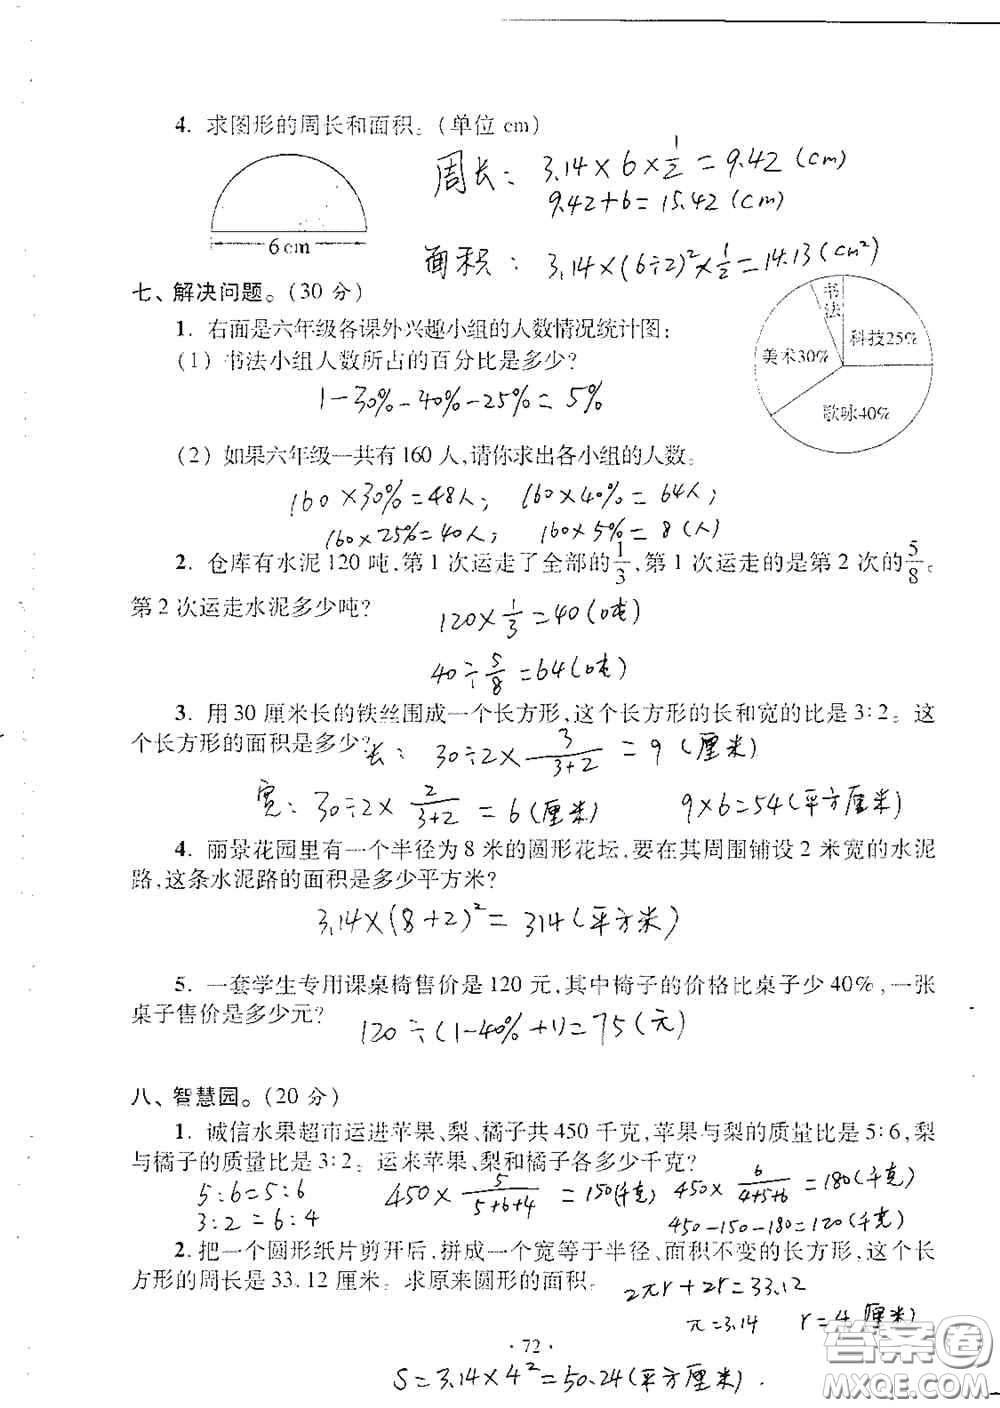 4. 求图形的周长和面积。(单位 cm)
周长: 3.14×6×1/2=9.42(cm)
9.42+6=15.42(cm)
6cm
面积: 3.14×(6÷2)²×1/2=14.13(cm²)
七、解决问题。(30 分)
1. 右面是六年级各课外兴趣小组的人数情况统计图:
(1) 书法小组人数所占的百分比是多少?
书法
科技25%
美术30%
歌咏40%
1-30%-40%-25%=5%
(2) 如果六年级一共有 160 人,请你求出各小组的人数。
160×30%=48人; 160×40%=64人;
160×25%=40人; 160×5%=8(人)
2. 仓库有水泥 120 吨,第 1 次运走了全部的1/3,第 1 次运走的是第 2 次的5/8。
第 2 次运走水泥多少吨?
120×1/3=40(吨)
40÷5/8=64(吨)
3. 用 30 厘米长的铁丝围成一个长方形,这个长方形的长和宽的比是 3∶2。这
个长方形的面积是多少?
长: 30÷2×3/(3+2)=9(厘米)
宽: 30÷2×2/(3+2)=6(厘米) 9×6=54(平方厘米)
4. 丽景花园里有一个半径为 8 米的圆形花坛,要在其周围铺设 2 米宽的水泥
路,这条水泥路的面积是多少平方米?
3.14×(8+2)²=314(平方米)
5. 一套学生专用课桌椅售价是 120 元,其中椅子的价格比桌子少 40%,一张
桌子售价是多少元?
120÷(1-40%+1)=75(元)
八、智慧园。(20 分)
1. 诚信水果超市运进苹果、梨、橘子共 450 千克,苹果与梨的质量比是 5∶6,梨
与橘子的质量比是 3∶2。运来苹果、梨和橘子各多少千克?
5:6=5:6 450×5/(5+6+4)=150(千克) 450×6/(4+5+6)=180(千克)
3:2=6:4 450-150-180=120(千克)
2. 把一个圆形纸片剪开后,拼成一个宽等于半径、面积不变的长方形,这个长
方形的周长是 33.12 厘米。求原来圆形的面积。
2πr+2r=33.12
π=3.14 r=4(厘米)
· 72 ·
S=3.14×4²=50.24(平方厘米).
答案圈
MXQE.COM